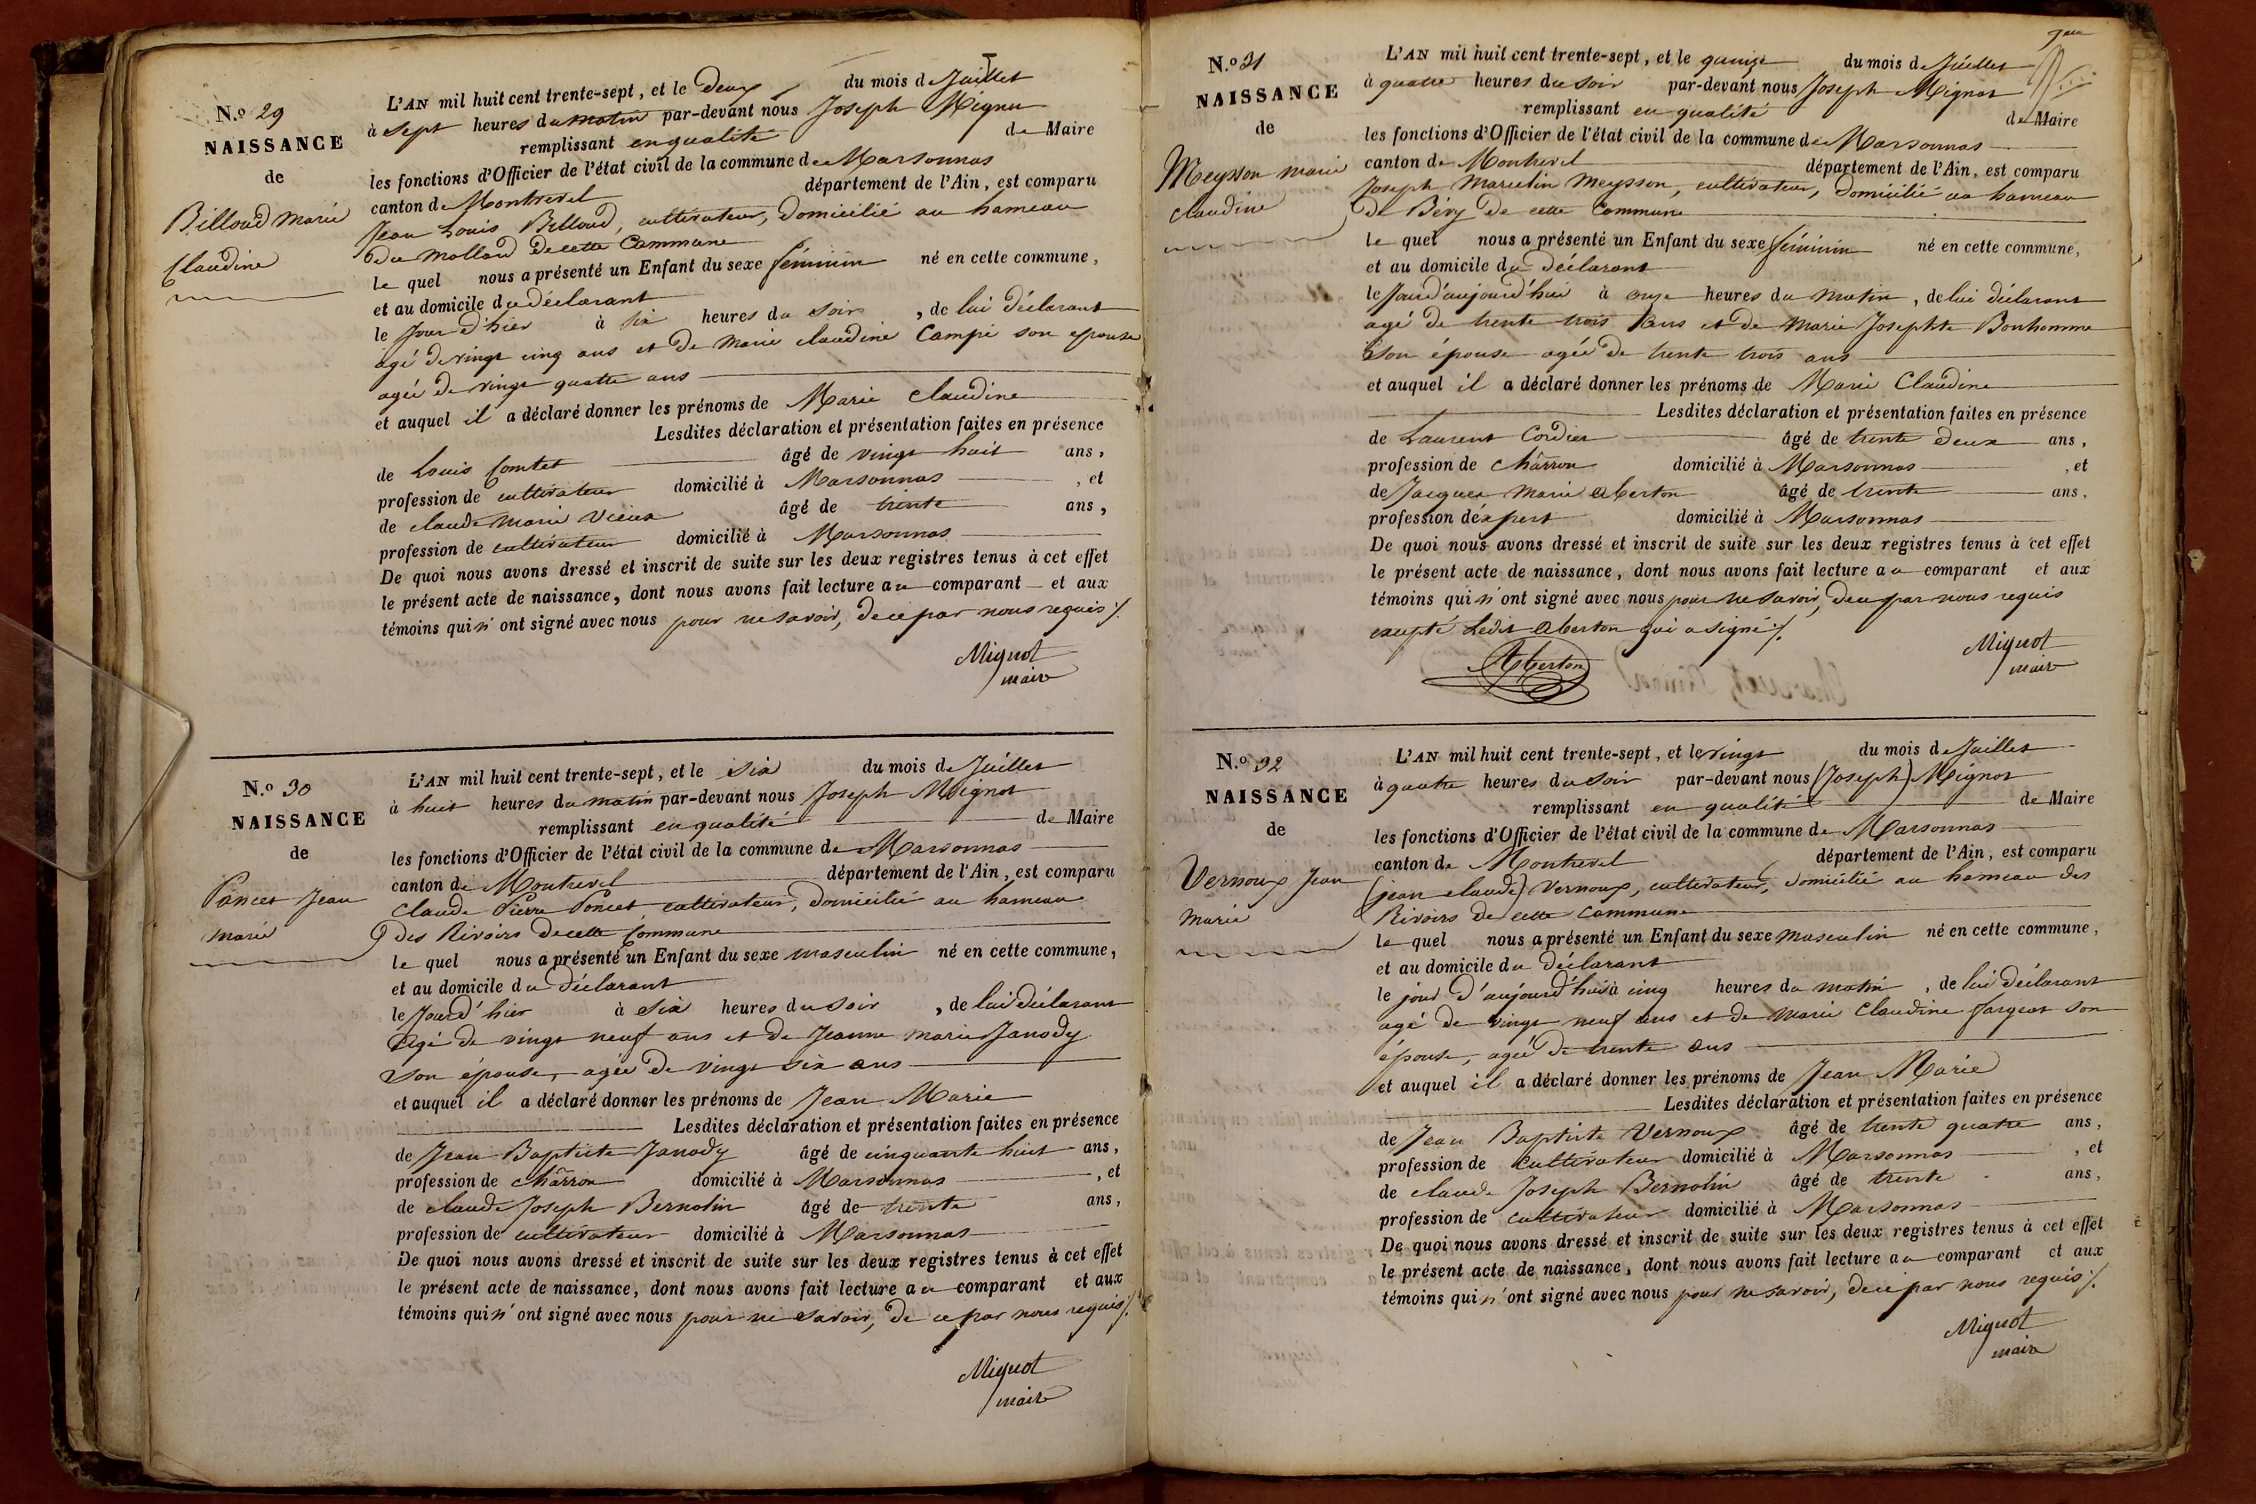 N.o 29
NAISSANCE
de
Billoud Marie
Claudine
L'AN mil huit cent trente-sept, et le deux du mois de Juillet
à sept heures du matin par-devant nous Joseph Mignot
remplissant en qualité de Maire
les fonctions d'Officier de l'état civil de la commune de Marsonnas
canton de Montrevel département de l'Ain, est comparu
Jean Louis Billoud, cultivateur, domicilié au hameau
du Mollard de cette Commune
le quel nous a présenté un Enfant du sexe féminin né en cette commune,
et au domicile du déclarant
le Jour d'hier à six heures du soir, de lui déclarant
agé de vingt cinq ans et de Marie Claudine Campi son épouse
agée de vingt quatre ans
et auquel il a déclaré donner les prénoms de Marie Claudine
Lesdites déclaration et présentation faites en présence
de Louis Comtet âgé de vingt huit ans,
profession de cultivateur domicilié à Marsonnas, et
de claude Marie Vieux âgé de trente ans,
profession de cultivateur domicilié à Marsonnas
De quoi nous avons dressé et inscrit de suite sur les deux registres tenus à cet effet
le présent acte de naissance, dont nous avons fait lecture au comparant et aux
témoins qui n'ont signé avec nous pour ne savoir, de ce par nous requis ./.
Mignot
maire
N.o 30
NAISSANCE
de
Poncet Jean
Marie
L'AN mil huit cent trente-sept, et le six du mois de Juillet
à huit heures du matin par-devant nous Joseph Mignot
remplissant en qualité de Maire
les fonctions d'Officier de l'état civil de la commune de Marsonnas
canton de Montrevel département de l'Ain, est comparu
Claude Pierre Poncet, cultivateur, domicilié au hameau
des Rivoirs de cette Commune
le quel nous a présenté un Enfant du sexe masculin né en cette commune,
et au domicile du déclarant
le Jour d'hier à six heures du soir, de lui déclarant
agé de vingt neuf ans et de Jeanne Marie Janody
son épouse, agée de vingt six ans
et auquel il a déclaré donner les prénoms de Jean Marie
Lesdites déclaration et présentation faites en présence
de Jean Baptiste Janody âgé de cinquante huit ans,
profession de chârron domicilié à Marsonnas, et
de claude Joseph Bernolin âgé de trente ans,
profession de cultivateur domicilié à Marsonnas
De quoi nous avons dressé et inscrit de suite sur les deux registres tenus à cet effet
le présent acte de naissance, dont nous avons fait lecture au comparant et aux
témoins qui n'ont signé avec nous pour ne savoir, de ce par nous requis ./.
Mignot
maire
N.o 31
NAISSANCE
de
Meysson Marie
Claudine
L'AN mil huit cent trente-sept, et le quinze du mois de Juillet
à quatre heures du soir par-devant nous Joseph Mignot
remplissant en qualité de Maire
les fonctions d'Officier de l'état civil de la commune de Marsonnas
canton de Montrevel département de l'Ain, est comparu
Joseph Marcelin Meysson, cultivateur, domicilié au hameau
de Béry de cette Commune
le quel nous a présenté un Enfant du sexe féminin né en cette commune,
et au domicile du déclarant
le Jour d'aujourd'hui à onze heures du matin, de lui déclarant
agé de trente trois ans et de Marie Josephte Bonhomme
son épouse agée de trente trois ans
et auquel il a déclaré donner les prénoms de Marie Claudine
Lesdites déclaration et présentation faites en présence
de Laurent Cordier âgé de trente deux ans,
profession de chârron domicilié à Marsonnas, et
de Jacques Marie Aberton âgé de trente ans,
profession d'éxpert domicilié à Marsonnas
De quoi nous avons dressé et inscrit de suite sur les deux registres tenus à cet effet
le présent acte de naissance, dont nous avons fait lecture au comparant et aux
témoins qui n'ont signé avec nous pour ne savoir, de ce par nous requis
excepté Ledit Aberton qui a signé ./.
Aberton
Mignot
maire
N.o 32
NAISSANCE
de
Vernoux Jean
Marie
L'AN mil huit cent trente-sept, et le vingt du mois de Juillet
à quatre heures du soir par-devant nous (Joseph) Mignot
remplissant en qualité de Maire
les fonctions d'Officier de l'état civil de la commune de Marsonnas
canton de Montrevel département de l'Ain, est comparu
(jean claude) Vernoux, cultivateur, domicilié au hameau des
Rivoirs de cette Commune
le quel nous a présenté un Enfant du sexe masculin né en cette commune,
et au domicile du déclarant
le jour d'aujourd'hui à cinq heures du matin, de lui déclarant
agé de vingt neuf ans et de Marie Claudine fargeot son
épouse, agée de trente ans
et auquel il a déclaré donner les prénoms de Jean Marie
Lesdites déclaration et présentation faites en présence
de Jean Baptiste Vernoux âgé de trente quatre ans,
profession de cultivateur domicilié à Marsonnas, et
de claude Joseph Bernolin âgé de trente ans,
profession de cultivateur domicilié à Marsonnas
De quoi nous avons dressé et inscrit de suite sur les deux registres tenus à cet effet
le présent acte de naissance, dont nous avons fait lecture au comparant et aux
témoins qui n'ont signé avec nous pour ne savoir, de ce par nous requis ./.
Mignot
maire